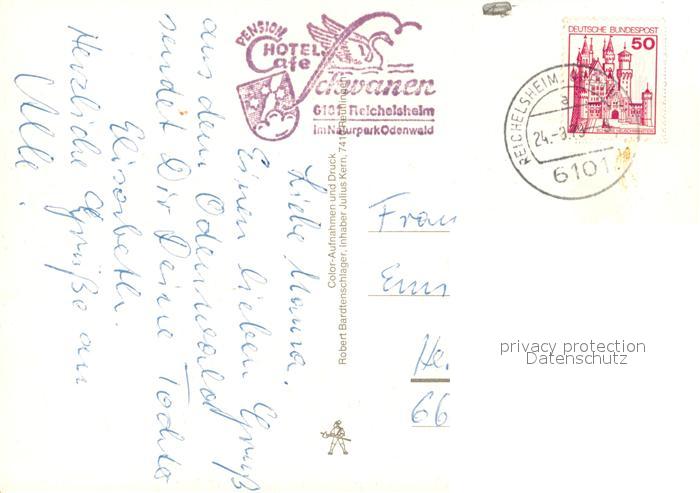 PENSION
HOTEL
Cafe
Schwanen
6101 Reichelsheim
im Naturpark Odenwald
DEUTSCHE BUNDESPOST
50
REICHELSHEIM
a
24.-3.79
6101
Color-Aufnahmen und Druck
Robert Bardtenschlager, Inhaber Julius Kern, 741 Reutlingen
Liebe Mama,
Einen lieben Gruß
aus dem Odenwald
sendet Dir Deine Tochter
Elisabeth.
Herzliche Grüße an
Alle.
Frau
He
66
privacy protection
Datenschutz